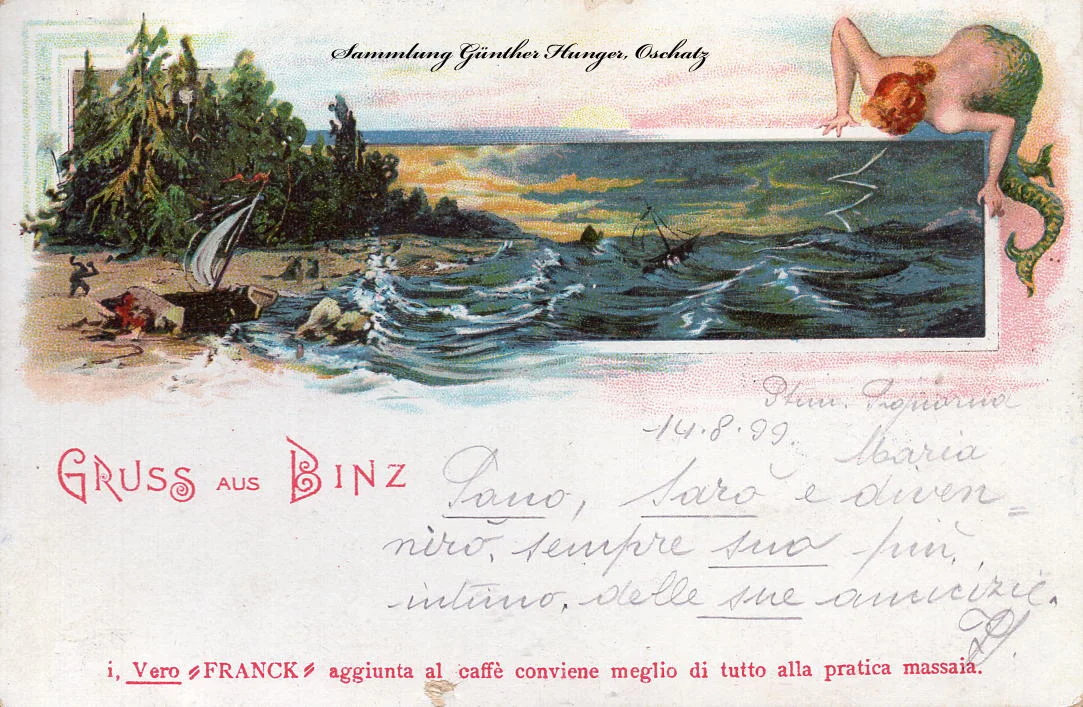 Sammlung Günther Hunger, Oschatz
14.8.99.
Maria
GRUSS AUS BINZ
Sono, sarò e diven=
nirò, sempre suo più,
intimo, delle sue amicizie.
i, Vero "FRANCK" aggiunta al caffè conviene meglio di tutto alla pratica massaia.